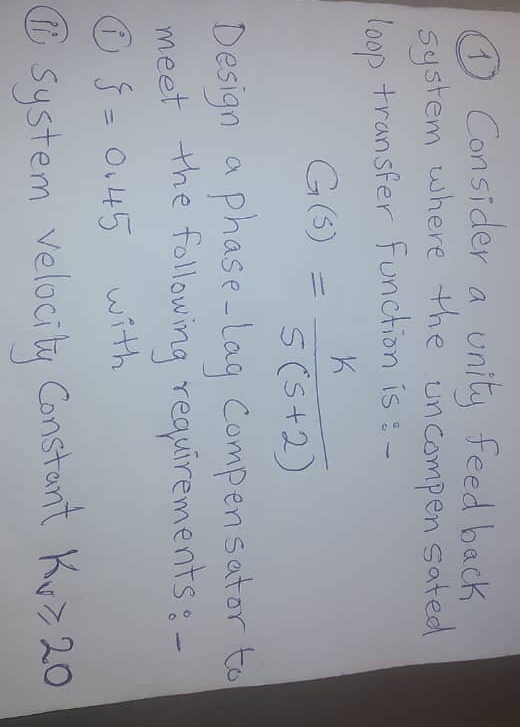 ① Consider a unity feedback
system where the uncompensated
loop transfer function is :-
G(s) = K / s(s+2)
Design a phase-lag compensator to
meet the following requirements :-
ⓘ ξ = 0.45 with
ⓘⓘ system velocity constant Kv ≥ 20